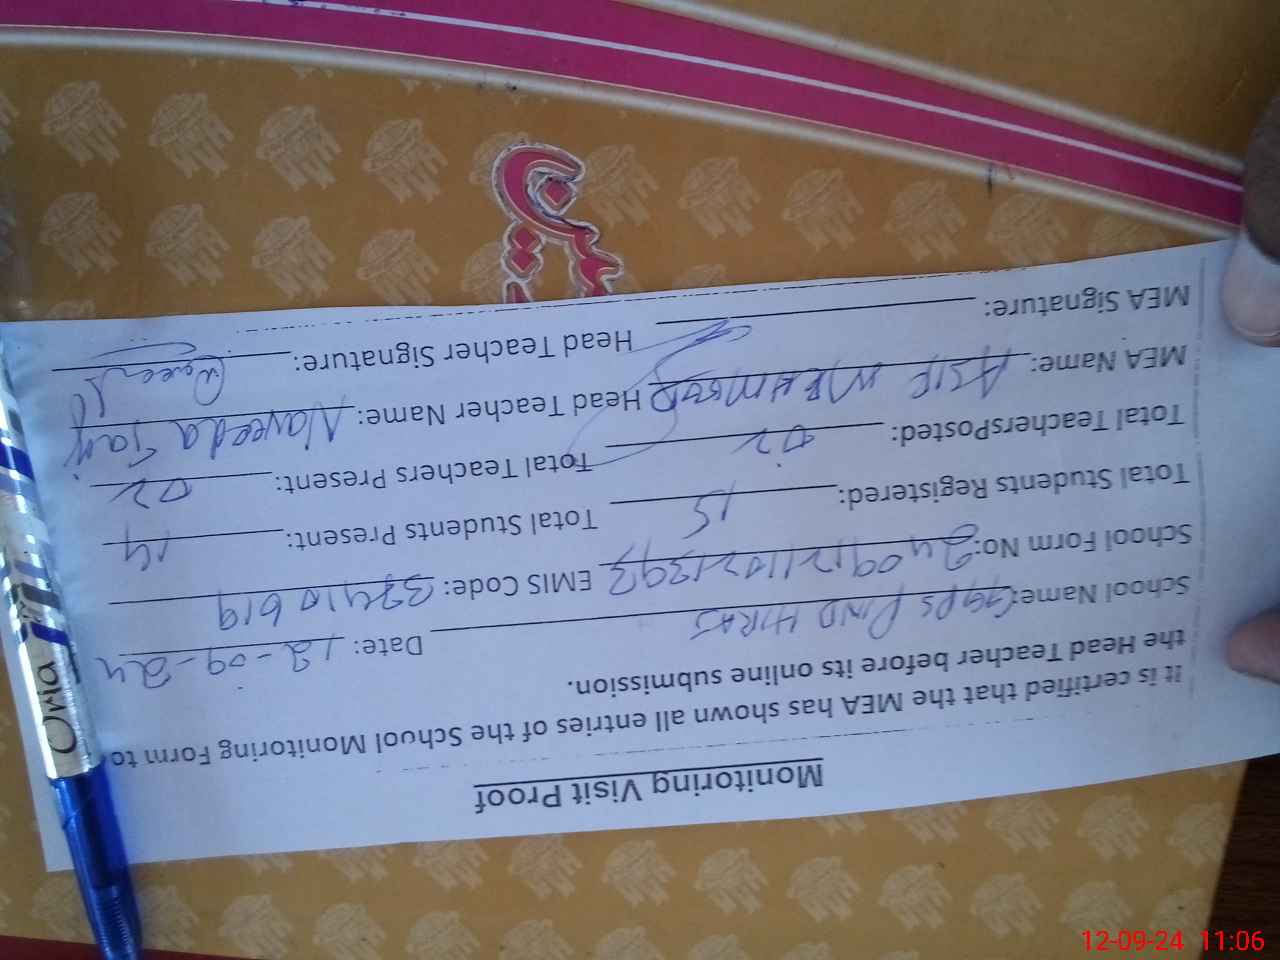 Monitoring Visit Proof
It is certified that the MEA has shown all entries of the School Monitoring Form to
the Head Teacher before its online submission.
School Name: GGPS PIND HIRAS Date: 12-09-24
School Form No: 24091211021393 EMIS Code: 37410619
Total Students Registered: 15 Total Students Present: 14
Total TeachersPosted: 02 Total Teachers Present: 02
MEA Name: ASIF MEHMOOD Head Teacher Name: Naveeda
MEA Signature: Head Teacher Signature:
Oria
12-09-24 11:06